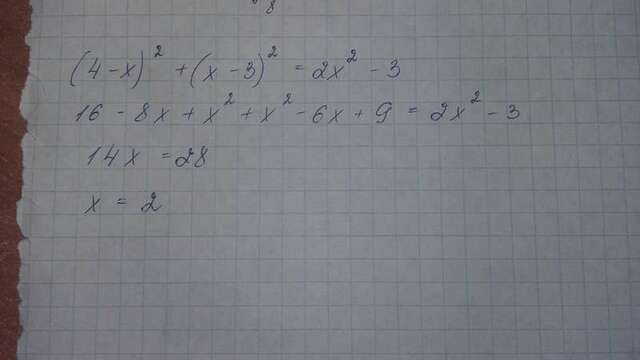 8
(4-x)² + (x-3)² = 2x² - 3
16 - 8x + x² + x² - 6x + 9 = 2x² - 3
14x = 28
x = 2